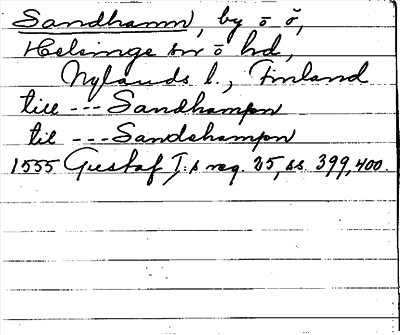 Sandhamn, by ō ŏ,
Helsinge sn ō hd,
Nylands l., Finland
till --- Sandhampn
til --- Sandshampn
1555 Gustaf I:s reg. 25, ss. 399, 400.